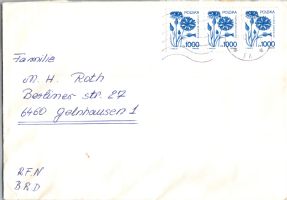 POLSKA POLSKA POLSKA
1000 1000 1000
Familie
M. H. Roth
Berliner str. 27
6460 Gelnhausen 1
RFN
BRD